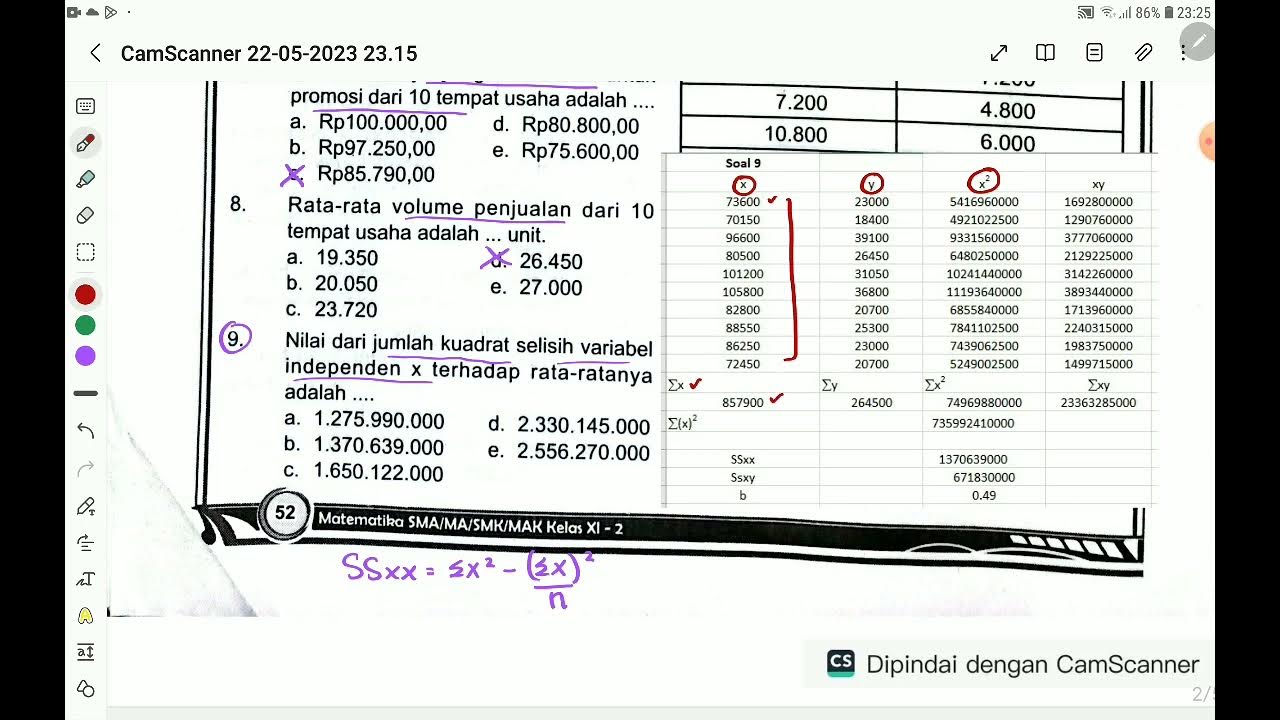 86% 23:25
CamScanner 22-05-2023 23.15
promosi dari 10 tempat usaha adalah ....
a. Rp100.000,00 d. Rp80.800,00
b. Rp97.250,00 e. Rp75.600,00
Rp85.790,00
7.200 4.800
10.800 6.000
8. Rata-rata volume penjualan dari 10
tempat usaha adalah ... unit.
a. 19.350 d. 26.450
b. 20.050 e. 27.000
c. 23.720
9. Nilai dari jumlah kuadrat selisih variabel
independen x terhadap rata-ratanya
adalah ....
a. 1.275.990.000 d. 2.330.145.000
b. 1.370.639.000 e. 2.556.270.000
c. 1.650.122.000
Soal 9
x y x² xy
73600 23000 5416960000 1692800000
70150 18400 4921022500 1290760000
96600 39100 9331560000 3777060000
80500 26450 6480250000 2129225000
101200 31050 10241440000 3142260000
105800 36800 11193640000 3893440000
82800 20700 6855840000 1713960000
88550 25300 7841102500 2240315000
86250 23000 7439062500 1983750000
72450 20700 5249002500 1499715000
∑x ∑y ∑x² ∑xy
857900 264500 74969880000 23363285000
∑(x)² 735992410000
SSxx 1370639000
Ssxy 671830000
b 0.49
52 Matematika SMA/MA/SMK/MAK Kelas XI - 2
SSxx = Σx² - (Σx)²/n
CS Dipindai dengan CamScanner
2/